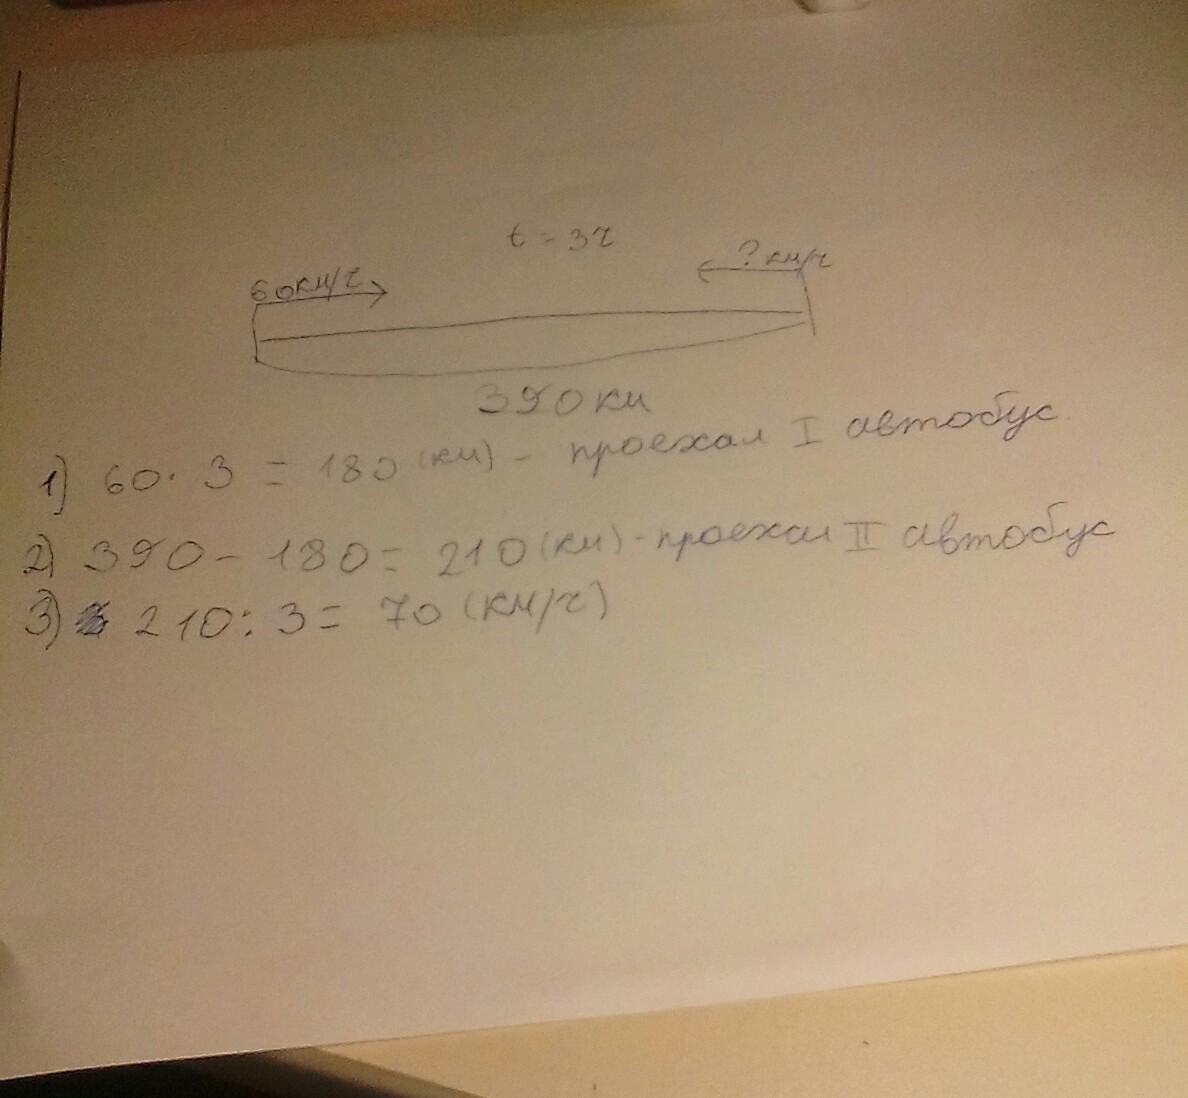 t = 3ч
60км/ч
? км/ч
390 км
1) 60 · 3 = 180 (км) - проехал I автобус.
2) 390 - 180 = 210 (км) - проехал II автобус
3) 210 : 3 = 70 (км/ч)